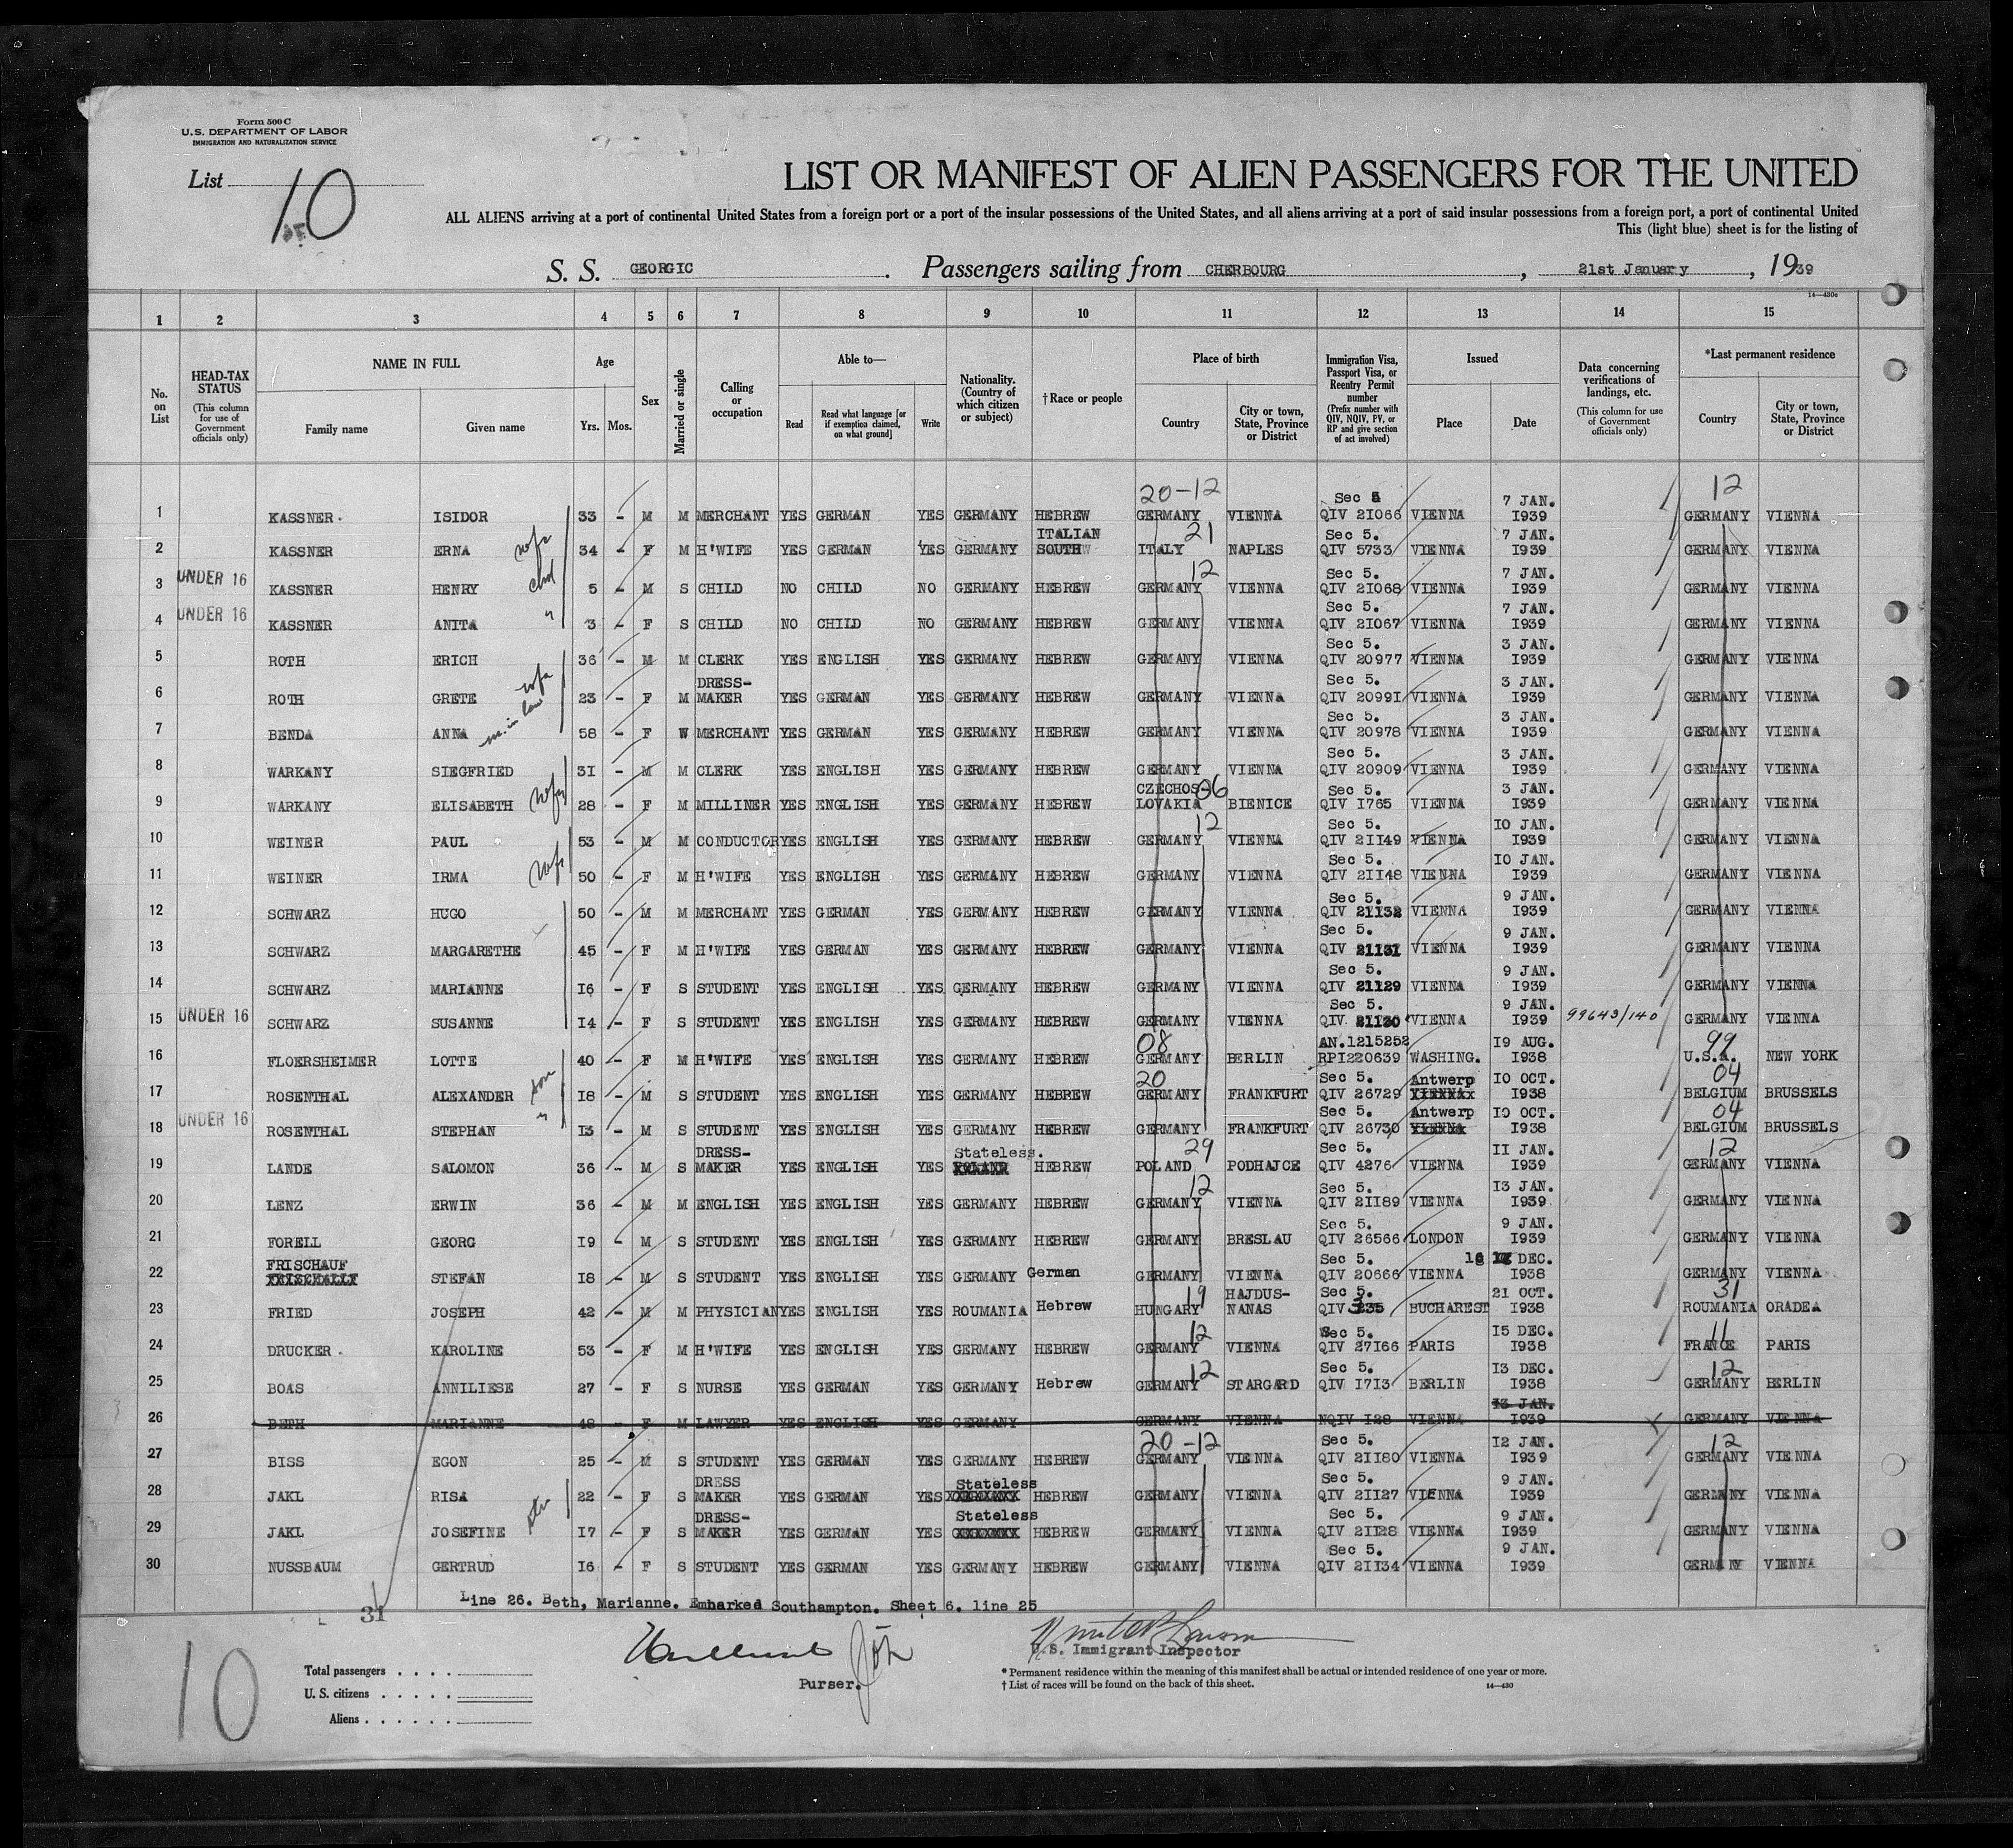 Form 500 C
U.S. DEPARTMENT OF LABOR
IMMIGRATION AND NATURALIZATION SERVICE
List 10
LIST OR MANIFEST OF ALIEN PASSENGERS FOR THE UNITED
ALL ALIENS arriving at a port of continental United States from a foreign port or a port of the insular possessions of the United States, and all aliens arriving at a port of said insular possessions from a foreign port, a port of continental United
This (light blue) sheet is for the listing of
S. S. GEORGIC. Passengers sailing from CHERBOURG, 21st January, 1939
14—430c
1 2 3 4 5 6 7 8 9 10 11 12 13 14 15
No. on List
HEAD-TAX STATUS (This column for use of Government officials only)
NAME IN FULL Family name Given name
Age Yrs. Mos.
Sex
Married or single
Calling or occupation
Able to— Read Read what language [or if exemption claimed, on what ground] Write
Nationality. (Country of which citizen or subject)
†Race or people
Place of birth Country City or town, State, Province or District
Immigration Visa, Passport Visa, or Reentry Permit number (Prefix number with QIV, NQIV, PV, or RP and give section of act involved)
Issued Place Date
Data concerning verifications of landings, etc. (This column for use of Government officials only)
*Last permanent residence Country City or town, State, Province or District
20-12 12
1 KASSNER. ISIDOR 33 - M M MERCHANT YES GERMAN YES GERMANY HEBREW GERMANY VIENNA Sec 5 QIV 21066 VIENNA 7 JAN. 1939 GERMANY VIENNA
2 KASSNER ERNA wfe 34 - F M H'WIFE YES GERMAN YES GERMANY ITALIAN SOUTH ITALY 21 NAPLES Sec 5. QIV 5733 VIENNA 7 JAN. 1939 GERMANY VIENNA
3 UNDER 16 KASSNER HENRY chd 5 - M S CHILD NO CHILD NO GERMANY HEBREW GERMANY 12 VIENNA Sec 5. QIV 21068 VIENNA 7 JAN. 1939 GERMANY VIENNA
4 UNDER 16 KASSNER ANITA " 3 - F S CHILD NO CHILD NO GERMANY HEBREW GERMANY VIENNA Sec 5. QIV 21067 VIENNA 7 JAN. 1939 GERMANY VIENNA
5 ROTH ERICH 36 - M M CLERK YES ENGLISH YES GERMANY HEBREW GERMANY VIENNA Sec 5. QIV 20977 VIENNA 3 JAN. 1939 GERMANY VIENNA
6 ROTH GRETE wfe 23 - F M DRESS-MAKER YES GERMAN YES GERMANY HEBREW GERMANY VIENNA Sec 5. QIV 20991 VIENNA 3 JAN. 1939 GERMANY VIENNA
7 BENDA ANNA m. in law 58 - F W MERCHANT YES GERMAN YES GERMANY HEBREW GERMANY VIENNA Sec 5. QIV 20978 VIENNA 3 JAN. 1939 GERMANY VIENNA
8 WARKANY SIEGFRIED 31 - M M CLERK YES ENGLISH YES GERMANY HEBREW GERMANY VIENNA Sec 5. QIV 20909 VIENNA 3 JAN. 1939 GERMANY VIENNA
9 WARKANY ELISABETH wfe 28 - F M MILLINER YES ENGLISH YES GERMANY HEBREW CZECHOS-LOVAKIA 06 BIENICE Sec 5. QIV 1765 VIENNA 3 JAN. 1939 GERMANY VIENNA
10 WEINER PAUL 53 - M M CONDUCTOR YES ENGLISH YES GERMANY HEBREW GERMANY 12 VIENNA Sec 5. QIV 21149 VIENNA 10 JAN. 1939 GERMANY VIENNA
11 WEINER IRMA wfe 50 - F M H'WIFE YES ENGLISH YES GERMANY HEBREW GERMANY VIENNA Sec 5. QIV 21148 VIENNA 10 JAN. 1939 GERMANY VIENNA
12 SCHWARZ HUGO 50 - M M MERCHANT YES GERMAN YES GERMANY HEBREW GERMANY VIENNA Sec 5. QIV 21132 VIENNA 9 JAN. 1939 GERMANY VIENNA
13 SCHWARZ MARGARETHE 45 - F M H'WIFE YES GERMAN YES GERMANY HEBREW GERMANY VIENNA Sec 5. QIV 21131 VIENNA 9 JAN. 1939 GERMANY VIENNA
14 SCHWARZ MARIANNE 16 - F S STUDENT YES ENGLISH YES GERMANY HEBREW GERMANY VIENNA Sec 5. QIV 21129 VIENNA 9 JAN. 1939 GERMANY VIENNA
15 UNDER 16 SCHWARZ SUSANNE 14 - F S STUDENT YES ENGLISH YES GERMANY HEBREW GERMANY VIENNA Sec 5. QIV 21130 VIENNA 9 JAN. 1939 99643/140 GERMANY VIENNA
16 FLOERSHEIMER LOTTE 40 - F M H'WIFE YES ENGLISH YES GERMANY HEBREW 08 GERMANY BERLIN AN.1215252 RP1220639 WASHING. 19 AUG. 1938 99 U.S.A. NEW YORK
17 ROSENTHAL ALEXANDER son 18 - M S STUDENT YES ENGLISH YES GERMANY HEBREW 20 GERMANY FRANKFURT Sec 5. QIV 26729 Antwerp 10 OCT. 1938 04 BELGIUM BRUSSELS
18 UNDER 16 ROSENTHAL STEPHAN " 13 - M S STUDENT YES ENGLISH YES GERMANY HEBREW GERMANY FRANKFURT Sec 5. QIV 26730 Antwerp VIENNA 10 OCT. 1938 04 BELGIUM BRUSSELS
19 LANDE SALOMON 36 - M S DRESS-MAKER YES ENGLISH YES Stateless. POLAND HEBREW POLAND 29 PODHAJCE Sec 5. QIV 4276 VIENNA 11 JAN. 1939 12 GERMANY VIENNA
20 LENZ ERWIN 36 - M M ENGLISH YES ENGLISH YES GERMANY HEBREW GERMANY 12 VIENNA Sec 5. QIV 21189 VIENNA 13 JAN. 1939 GERMANY VIENNA
21 FORELL GEORG 19 - M S STUDENT YES ENGLISH YES GERMANY HEBREW GERMANY BRESLAU Sec 5. QIV 26566 LONDON 9 JAN. 1939 GERMANY VIENNA
22 FRISCHAUF STEFAN 18 - M S STUDENT YES ENGLISH YES GERMANY German GERMANY VIENNA Sec 5. QIV 20666 VIENNA DEC. 1938 GERMANY VIENNA
23 FRIED JOSEPH 42 - M M PHYSICIAN YES ENGLISH YES ROUMANIA Hebrew HUNGARY 19 HAJDUS-NANAS Sec 5. QIV 235 BUCHAREST 21 OCT. 1938 31 ROUMANIA ORADEA
24 DRUCKER. KAROLINE 53 - F M H'WIFE YES ENGLISH YES GERMANY HEBREW GERMANY 12 VIENNA Sec 5. QIV 27166 PARIS 15 DEC. 1938 11 FRANCE PARIS
25 BOAS ANNILIESE 27 - F S NURSE YES GERMAN YES GERMANY Hebrew GERMANY 12 STARGARD Sec 5. QIV 1713 BERLIN 13 DEC. 1938 12 GERMANY BERLIN
26 BETH MARIANNE 48 - F M LAWYER YES ENGLISH YES GERMANY GERMANY VIENNA NQIV 128 VIENNA 13 JAN. 1939 x GERMANY VIENNA
27 BISS EGON 25 - M S STUDENT YES GERMAN YES GERMANY HEBREW 20-12 GERMANY VIENNA Sec 5. QIV 21180 VIENNA 12 JAN. 1939 12 GERMANY VIENNA
28 JAKL RISA 22 - F S DRESS MAKER YES GERMAN YES Stateless HEBREW GERMANY VIENNA Sec 5. QIV 21127 VIENNA 9 JAN. 1939 GERMANY VIENNA
29 JAKL JOSEFINE 17 - F S DRESS-MAKER YES GERMAN YES Stateless HEBREW GERMANY VIENNA Sec 5. QIV 21128 VIENNA 9 JAN. 1939 GERMANY VIENNA
30 NUSSBAUM GERTRUD 16 - F S STUDENT YES GERMAN YES GERMANY HEBREW GERMANY VIENNA Sec 5. QIV 21134 VIENNA 9 JAN. 1939 GERMANY VIENNA
Line 26. Beth, Marianne. Embarked Southampton. Sheet 6. line 25
31
10
Total passengers
U. S. citizens
Aliens
Purser.
U.S. Immigrant Inspector
* Permanent residence within the meaning of this manifest shall be actual or intended residence of one year or more.
† List of races will be found on the back of this sheet.
14—430